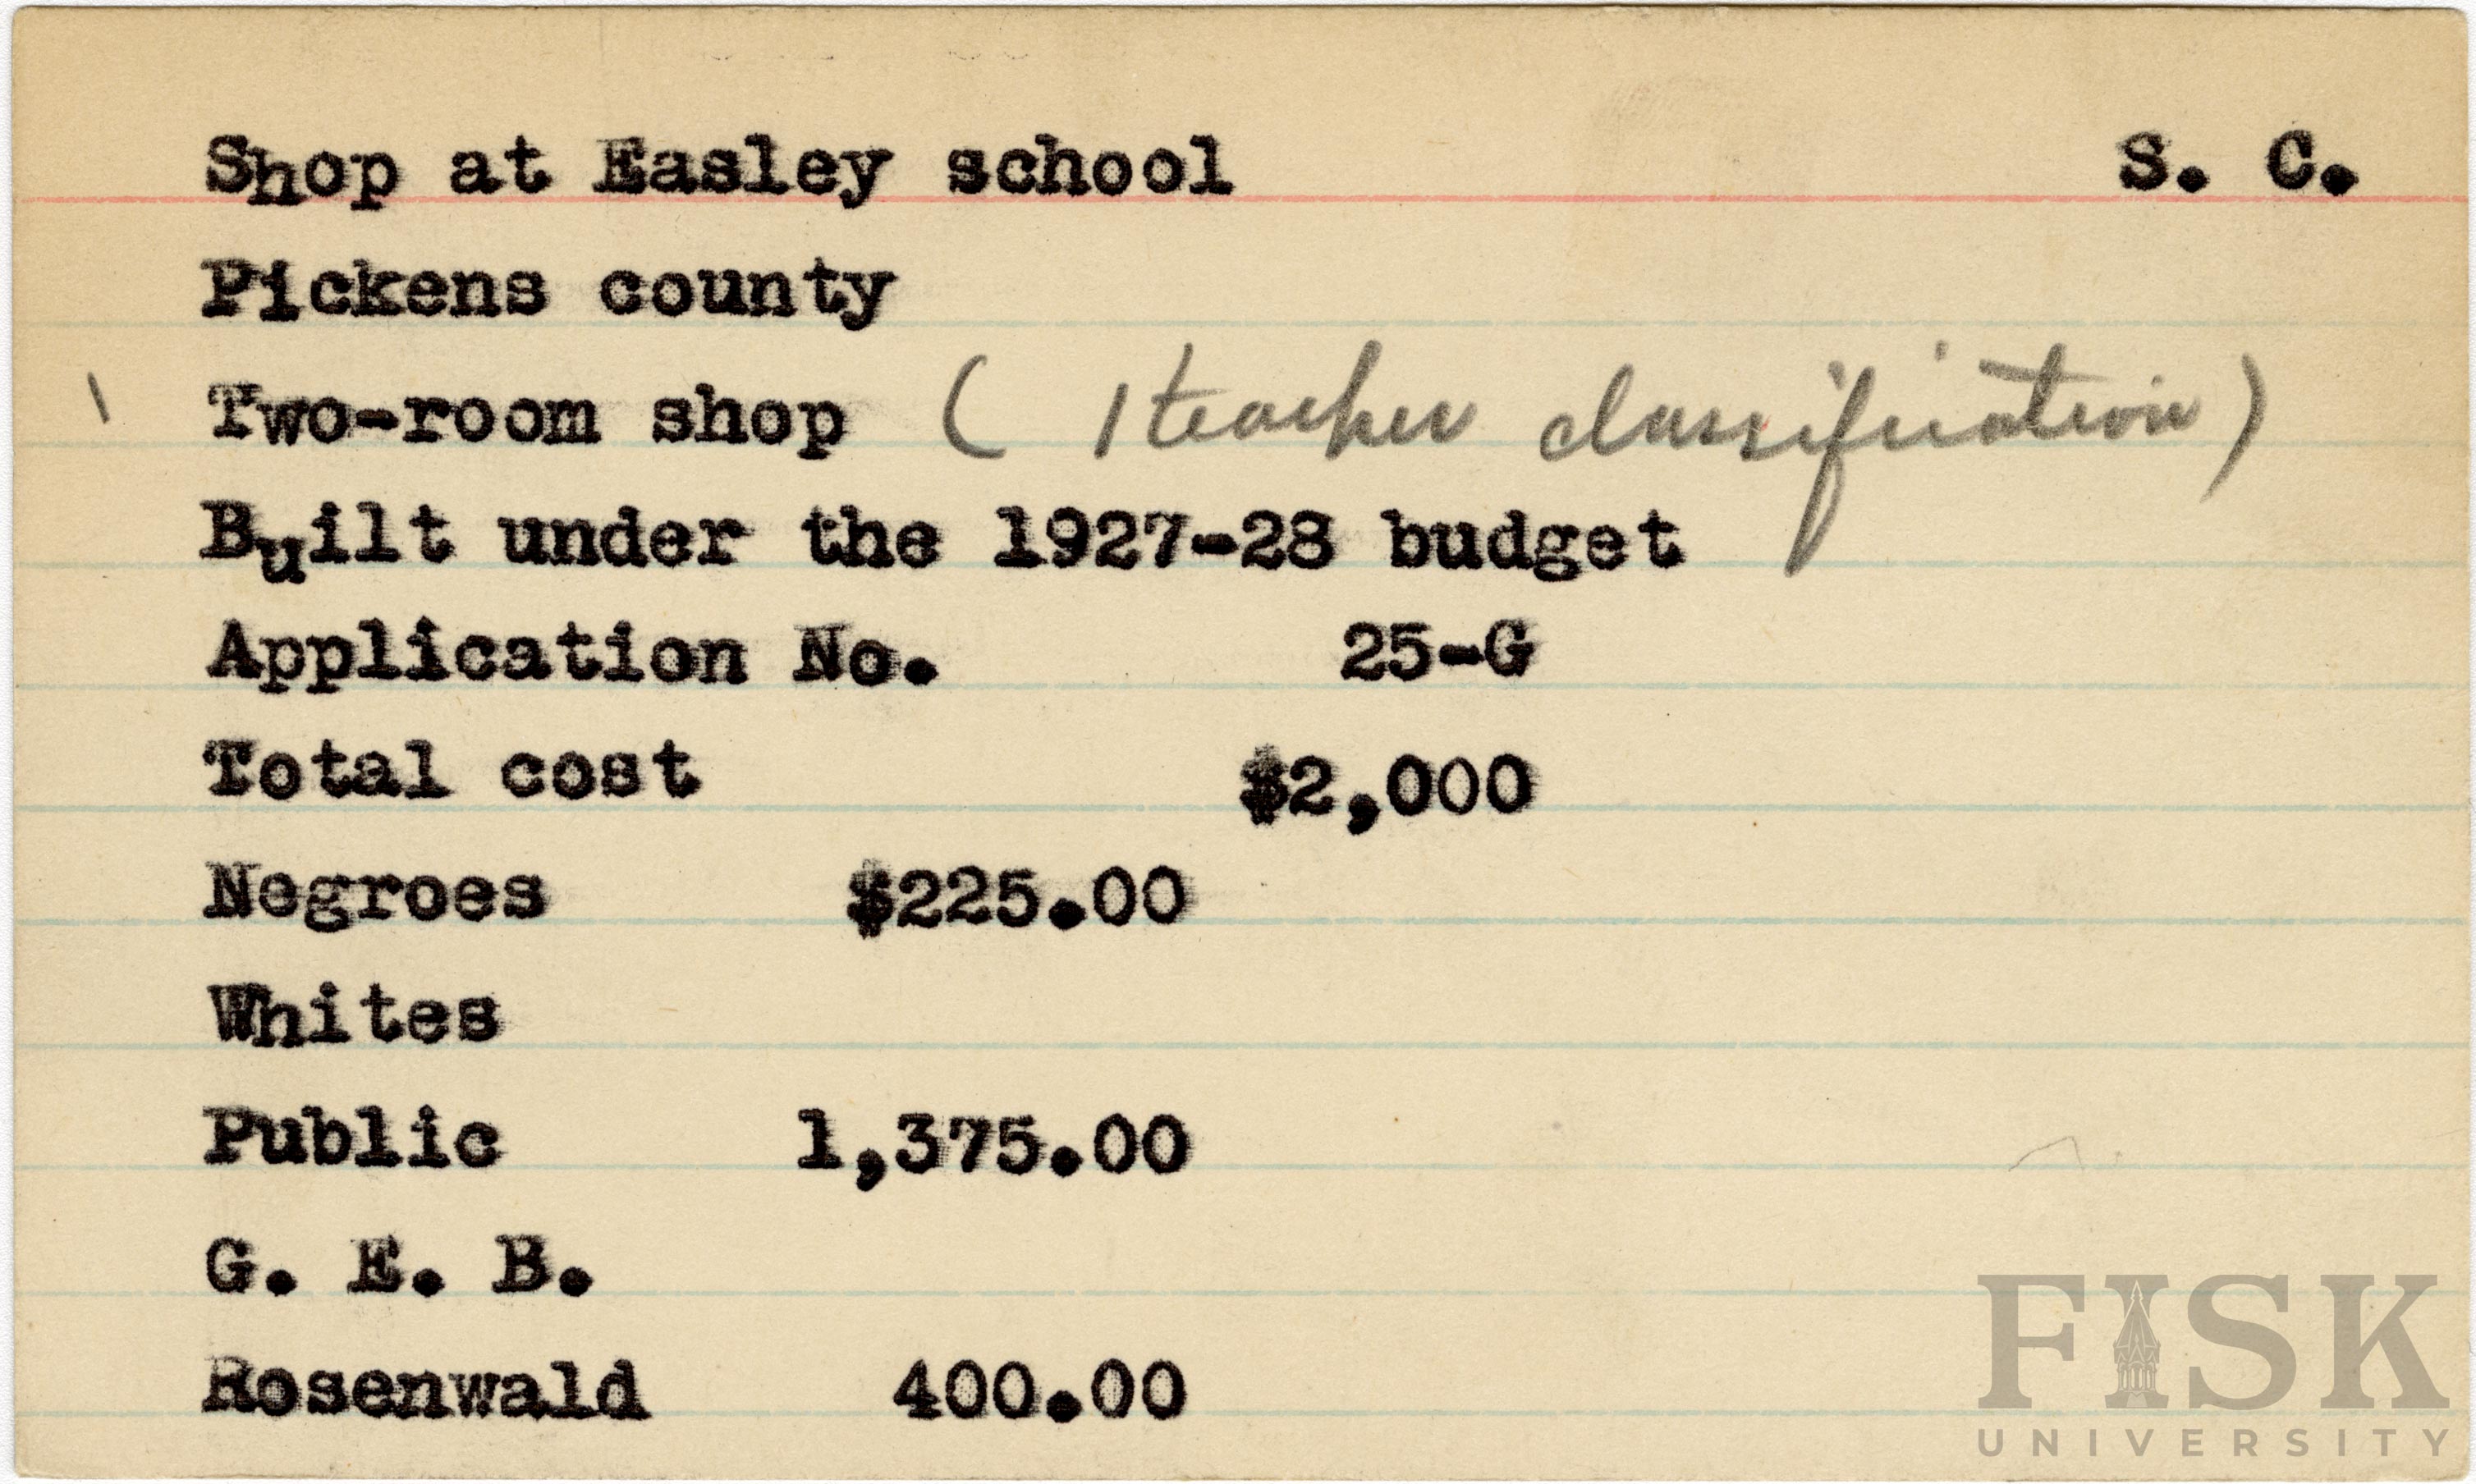 Shop at Easley school S. C.
Pickens county
Two-room shop ( 1 teacher classification )
Built under the 1927-28 budget
Application No. 25-G
Total cost $2,000
Negroes $225.00
Whites
Public 1,375.00
G. E. B.
Rosenwald 400.00
FISK
UNIVERSITY